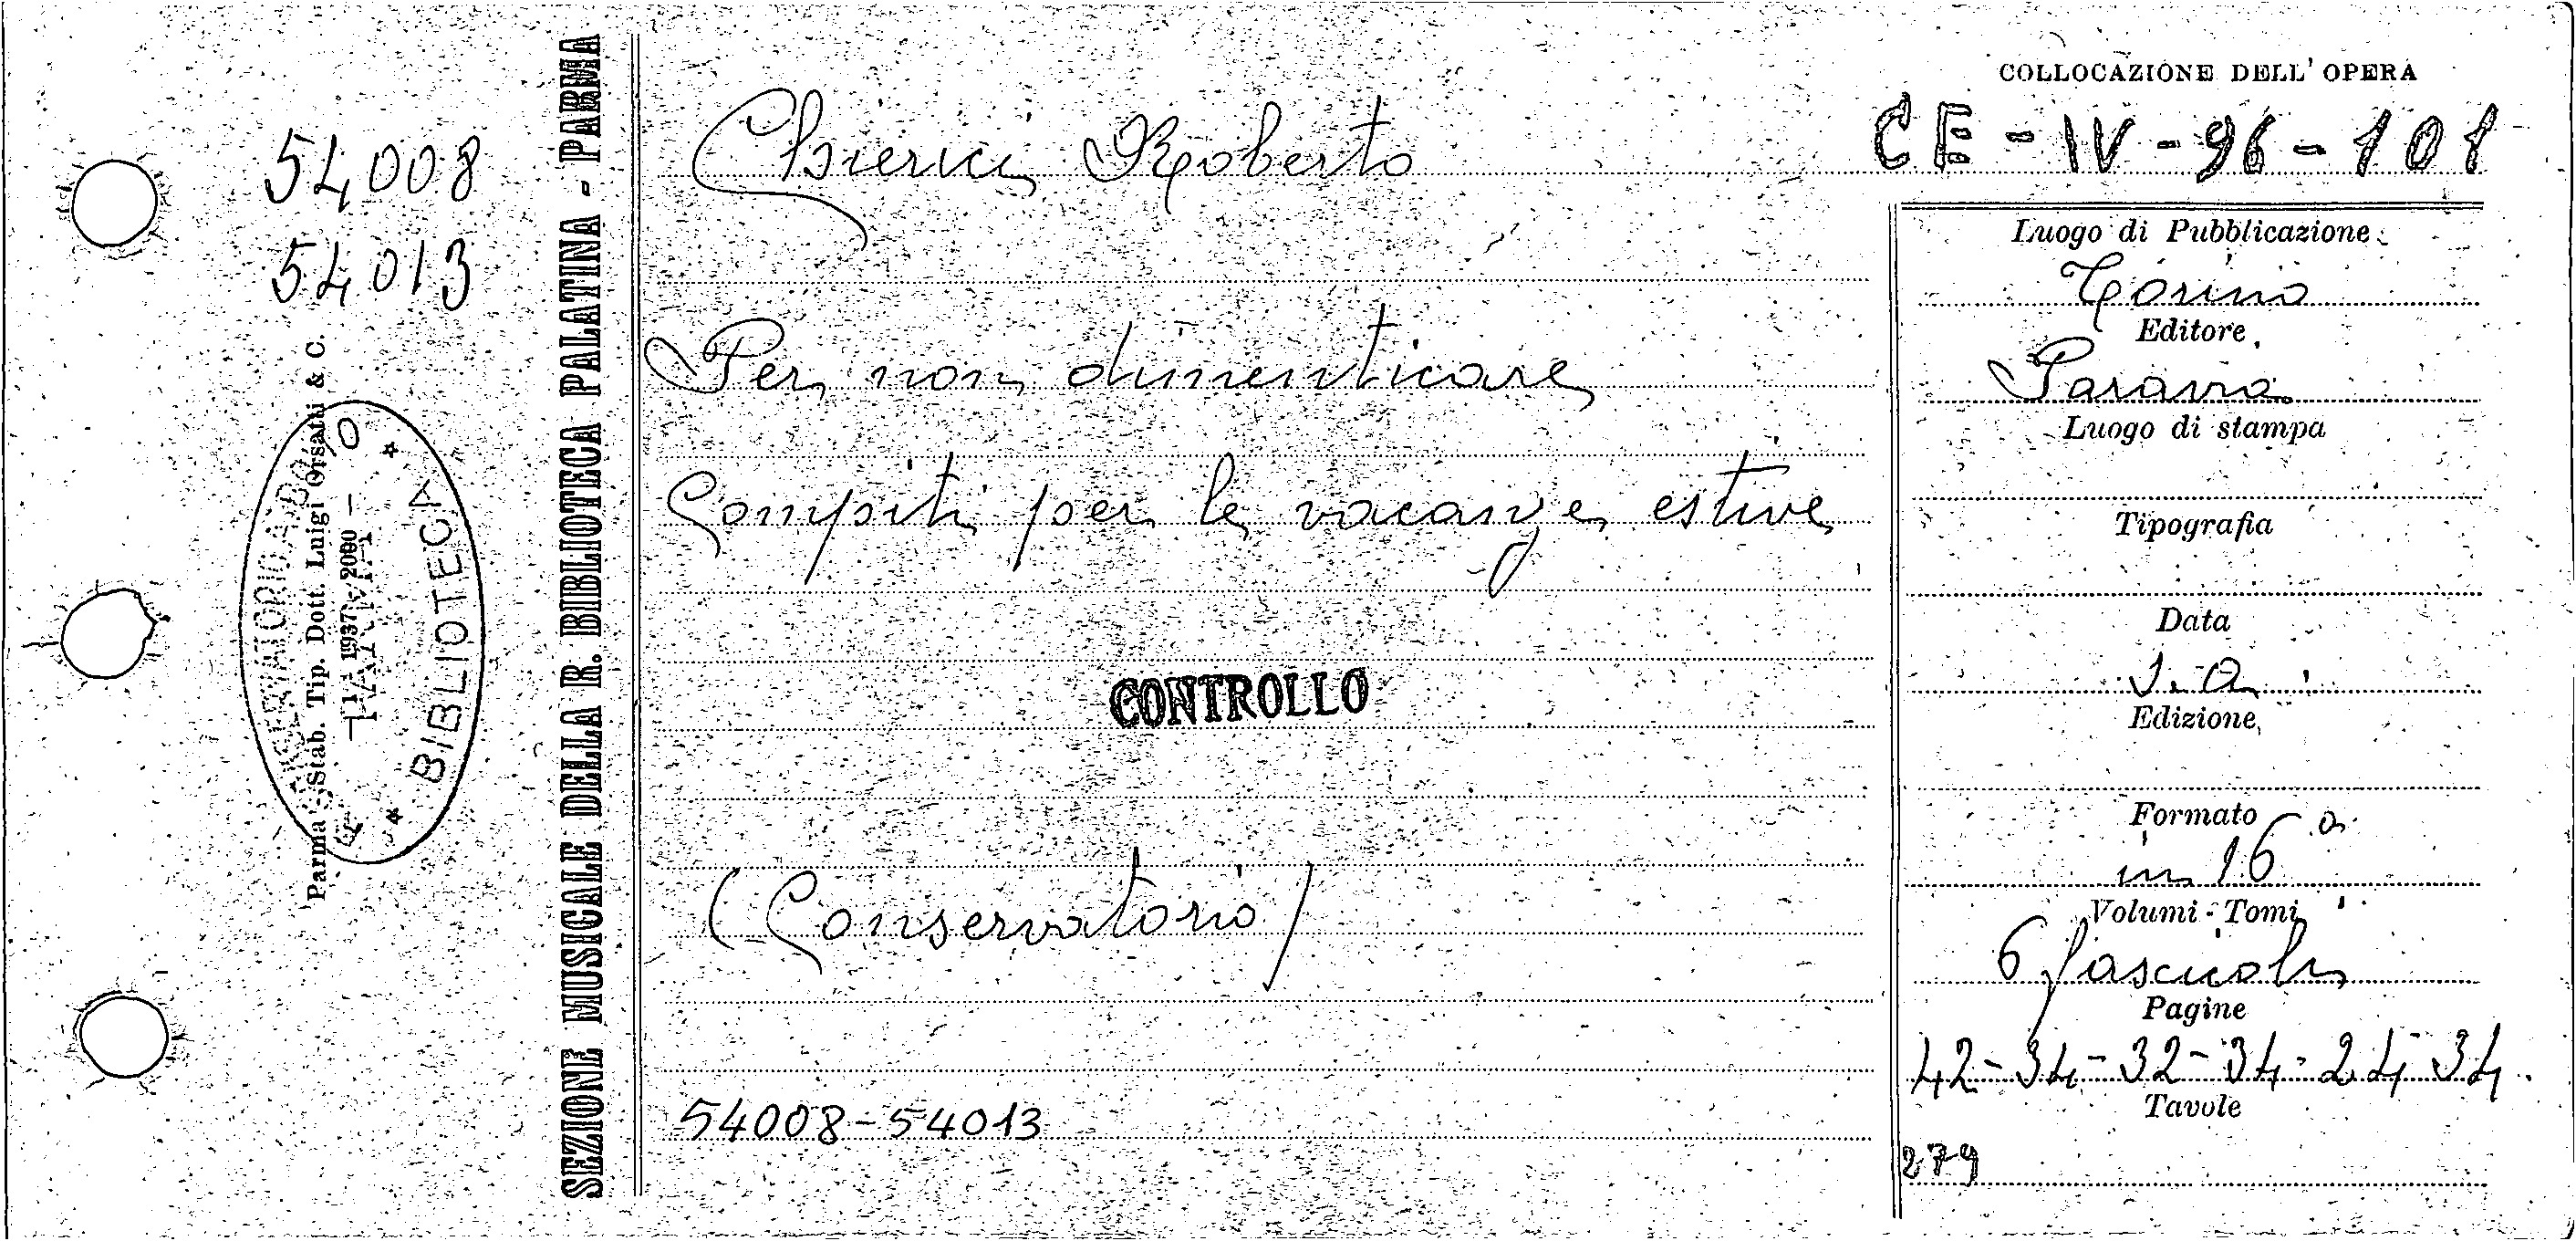 54008
54013
Parma - Stab. Tip. Dott. Luigi Orsatti & C.
11-1937 - 2000
BIBLIOTECA
SEZIONE MUSICALE DELLA R. BIBLIOTECA PALATINA - PARMA
Chierici Roberto
Per non dimenticare
Compiti per le vacanze estive
CONTROLLO
(Conservatorio)
54008-54013
COLLOCAZIONE DELL'OPERA
CE-IV-96-101
Luogo di Pubblicazione
Torino
Editore
Paravia
Luogo di stampa
Tipografia
Data
s.a.
Edizione
Formato
in 16°
Volumi - Tomi
6 fascicoli
Pagine
42-34-32-34-24-34.
Tavole
279